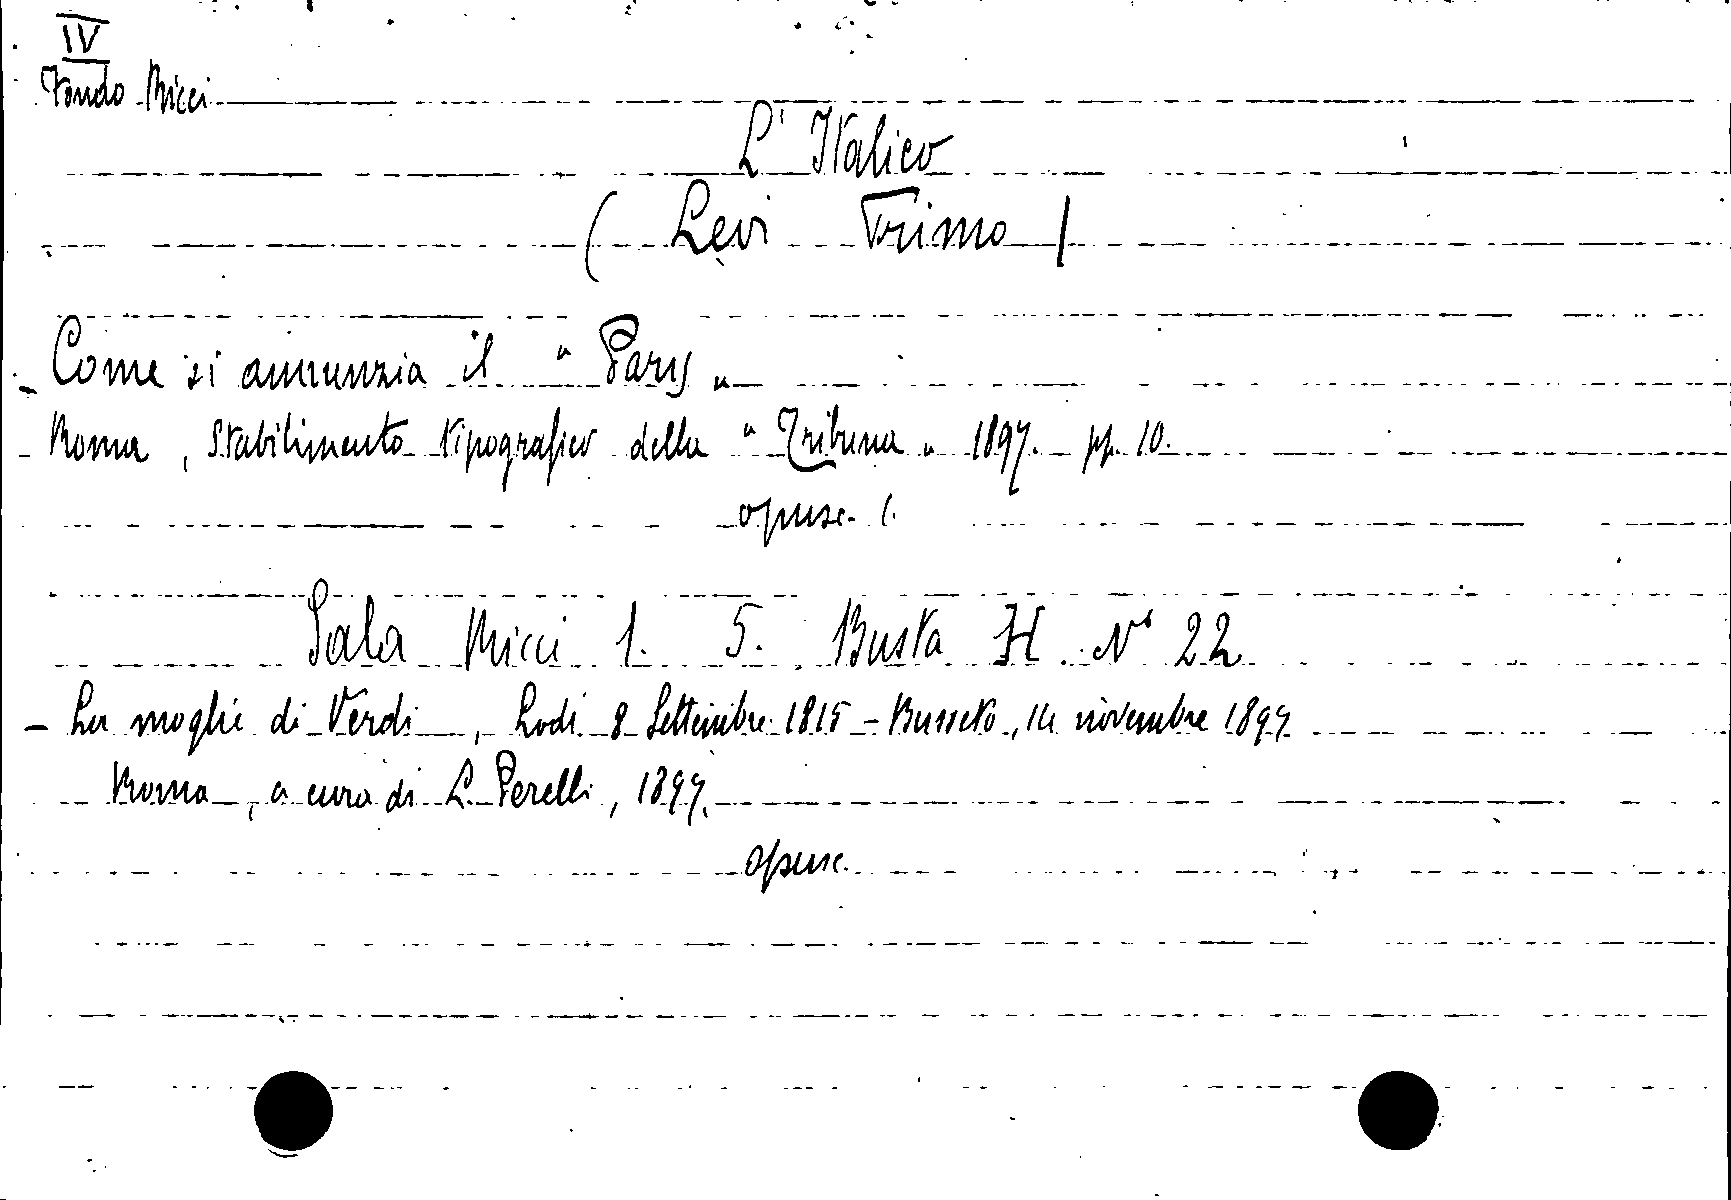 IV
Fondo Ricci
L'Italico
( Levi Primo )
- Come si annunzia il " Paris "
- Roma, Stabilimento tipografico della " Tribuna " 1897. pp. 10.
opusc. 1.
Sala Ricci 1. 5. Busta H. N° 22
- La moglie di Verdi, Lodi 8 Settembre 1815 - Busseto, 14 novembre 1897
Roma, a cura di L. Perelli, 1897.
opusc.